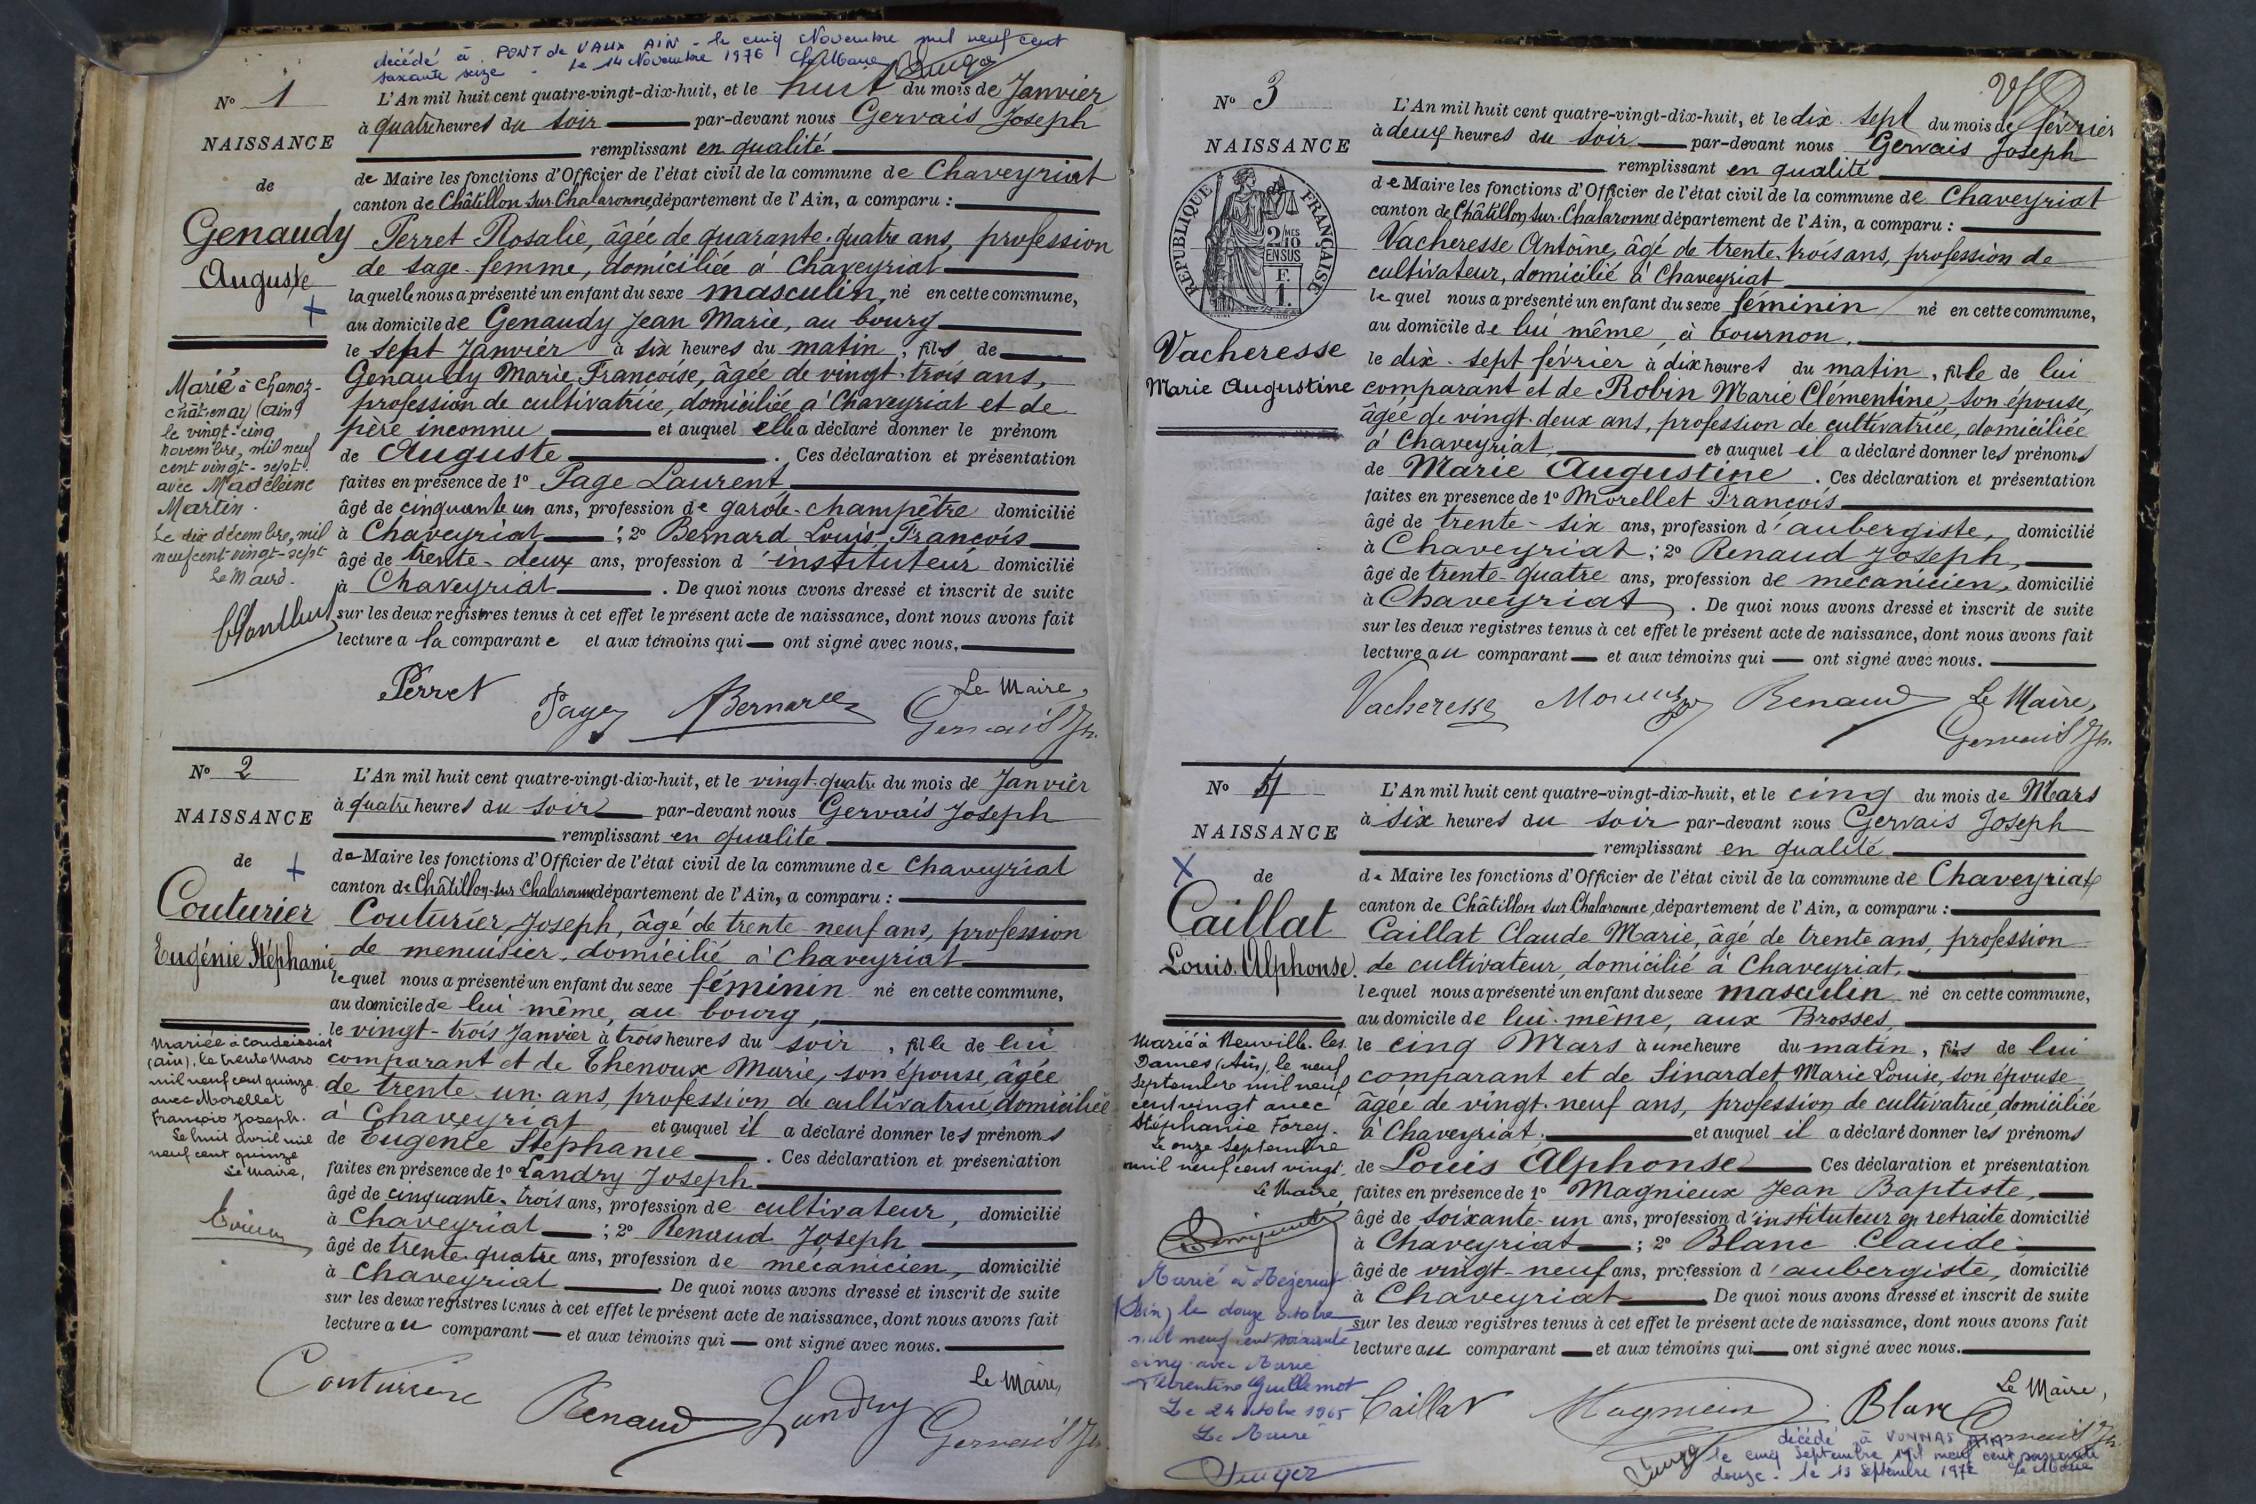 décédé à PONT de VAUX AIN - le cinq Novembre mil neuf cent
soixante seize - le 14 Novembre 1976 Le Maire
N° 1
NAISSANCE
de
Genaudy
Auguste
L'An mil huit cent quatre-vingt-dix-huit, et le huit du mois de Janvier
à quatre heures du soir par-devant nous Gervais Joseph
remplissant en qualité
de Maire les fonctions d'Officier de l'état civil de la commune de Chaveyriat
canton de Châtillon sur Chalaronne, département de l'Ain, a comparu :
Perret Rosalie, âgée de quarante-quatre ans, profession
de sage-femme, domiciliée à Chaveyriat
laquelle nous a présenté un enfant du sexe masculin, né en cette commune,
au domicile de Genaudy Jean Marie, au bourg
le sept Janvier à six heures du matin, fils de
Genaudy Marie Françoise, âgée de vingt-trois ans,
profession de cultivatrice, domiciliée à Chaveyriat et de
père inconnu et auquel elle a déclaré donner le prénom
de Auguste . Ces déclaration et présentation
faites en présence de 1° Page Laurent
âgé de cinquante un ans, profession de garde-champêtre domicilié
à Chaveyriat ; 2° Bernard Louis François
âgé de trente-deux ans, profession d'instituteur domicilié
à Chaveyriat . De quoi nous avons dressé et inscrit de suite
sur les deux registres tenus à cet effet le présent acte de naissance, dont nous avons fait
lecture a la comparante et aux témoins qui ont signé avec nous.
Marié à Chanoz-
châtenay (ain)
le vingt-cinq
novembre, mil neuf
cent vingt-sept
avec Madeleine
Martin.
Le dix décembre, mil
neuf cent vingt-sept
Le Maire.
Perret Page Bernard Le Maire,
Gervais Jh.
N° 2
NAISSANCE
de
Couturier
Eugénie Stéphanie
L'An mil huit cent quatre-vingt-dix-huit, et le vingt-quatre du mois de Janvier
à quatre heures du soir par-devant nous Gervais Joseph
remplissant en qualité
de Maire les fonctions d'Officier de l'état civil de la commune de Chaveyriat
canton de Châtillon-sur Chalaronne département de l'Ain, a comparu :
Couturier Joseph, âgé de trente-neuf ans, profession
de menuisier, domicilié à Chaveyriat
lequel nous a présenté un enfant du sexe féminin né en cette commune,
au domicile de lui même, au bourg,
le vingt-trois Janvier à trois heures du soir, fille de lui
comparant et de Thenoux Marie, son épouse, âgée
de trente-un ans, profession de cultivatrice, domiciliée
à Chaveyriat et auquel il a déclaré donner les prénoms
de Eugénie Stéphanie . Ces déclaration et présentation
faites en présence de 1° Landry Joseph
âgé de cinquante-trois ans, profession de cultivateur, domicilié
à Chaveyriat ; 2° Renaud Joseph
âgé de trente-quatre ans, profession de mécanicien, domicilié
à Chaveyriat . De quoi nous avons dressé et inscrit de suite
sur les deux registres tenus à cet effet le présent acte de naissance, dont nous avons fait
lecture au comparant et aux témoins qui ont signé avec nous.
Mariée à Condeissiat
(ain), le trente Mars
mil neuf cent quinze
avec Morellet
François Joseph.
Le huit avril mil
neuf cent quinze
Le Maire,
Couturier Renaud Landry Le Maire,
Gervais Jh.
N° 3
NAISSANCE
RÉPUBLIQUE FRANÇAISE
2/10 MES
EN SUS
F.
1.
Vacheresse
Marie Augustine
L'An mil huit cent quatre-vingt-dix-huit, et le dix-sept du mois de février
à deux heures du soir par-devant nous Gervais Joseph
remplissant en qualité
de Maire les fonctions d'Officier de l'état civil de la commune de Chaveyriat
canton de Châtillon sur Chalaronne département de l'Ain, a comparu :
Vacheresse Antoine, âgé de trente-trois ans, profession de
cultivateur, domicilié à Chaveyriat
lequel nous a présenté un enfant du sexe féminin né en cette commune,
au domicile de lui même, à tournon,
le dix-sept février à dix heures du matin, fille de lui
comparant et de Robin Marie Clémentine, son épouse,
âgée de vingt-deux ans, profession de cultivatrice, domiciliée
à Chaveyriat, et auquel il a déclaré donner les prénoms
de Marie Augustine . Ces déclaration et présentation
faites en présence de 1° Morellet François
âgé de trente-six ans, profession d'aubergiste, domicilié
à Chaveyriat ; 2° Renaud Joseph,
âgé de trente-quatre ans, profession de mécanicien, domicilié
à Chaveyriat . De quoi nous avons dressé et inscrit de suite
sur les deux registres tenus à cet effet le présent acte de naissance, dont nous avons fait
lecture au comparant et aux témoins qui ont signé avec nous.
Vacheresse Renaud Le Maire,
Gervais Jh.
N° 4
NAISSANCE
de
Caillat
Louis Alphonse.
L'An mil huit cent quatre-vingt-dix-huit, et le cinq du mois de Mars
à six heures du soir par-devant nous Gervais Joseph
remplissant en qualité
de Maire les fonctions d'Officier de l'état civil de la commune de Chaveyriat
canton de Châtillon sur Chalaronne, département de l'Ain, a comparu :
Caillat Claude Marie, âgé de trente ans, profession
de cultivateur, domicilié à Chaveyriat,
lequel nous a présenté un enfant du sexe masculin né en cette commune,
au domicile de lui-même, aux Brosses,
le cinq Mars à une heure du matin, fils de lui
comparant et de Sinardet Marie Louise, son épouse
âgée de vingt-neuf ans, profession de cultivatrice, domiciliée
à Chaveyriat, et auquel il a déclaré donner les prénoms
de Louis Alphonse Ces déclaration et présentation
faites en présence de 1° Magnieux Jean Baptiste,
âgé de soixante-un ans, profession d'instituteur en retraite domicilié
à Chaveyriat ; 2° Blanc Claude
âgé de vingt-neuf ans, profession d'aubergiste, domicilié
à Chaveyriat De quoi nous avons dressé et inscrit de suite
sur les deux registres tenus à cet effet le présent acte de naissance, dont nous avons fait
lecture au comparant et aux témoins qui ont signé avec nous.
Marié à Neuville-les
Dames (Ain), le neuf
Septembre mil neuf
cent vingt avec
Stéphanie Forey.
Le onze Septembre
mil neuf cent vingt.
Le Maire
Marié à Mézériat
(Ain) le douze octobre
mil neuf cent soixante
cinq avec Marie
Florentine Guillemot
Le 24 octobre 1965
Le Maire
Caillat Magnieux Blanc Le Maire,
Gervais Jh.
décédé à VONNAS AIN
le cinq Septembre mil neuf cent soixante
douze - le 13 Septembre 1972 Le Maire